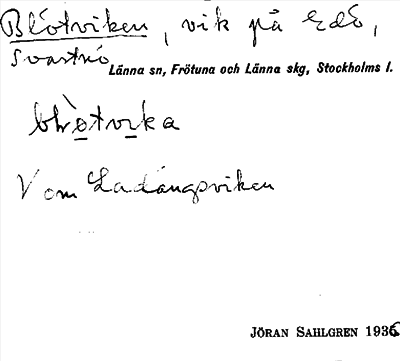 Blötviken, vik på Edö,
Svartnö
Länna sn, Frötuna och Länna skg, Stockholms l.
blòtvika
V om Ladängsviken
JÖRAN SAHLGREN 1936